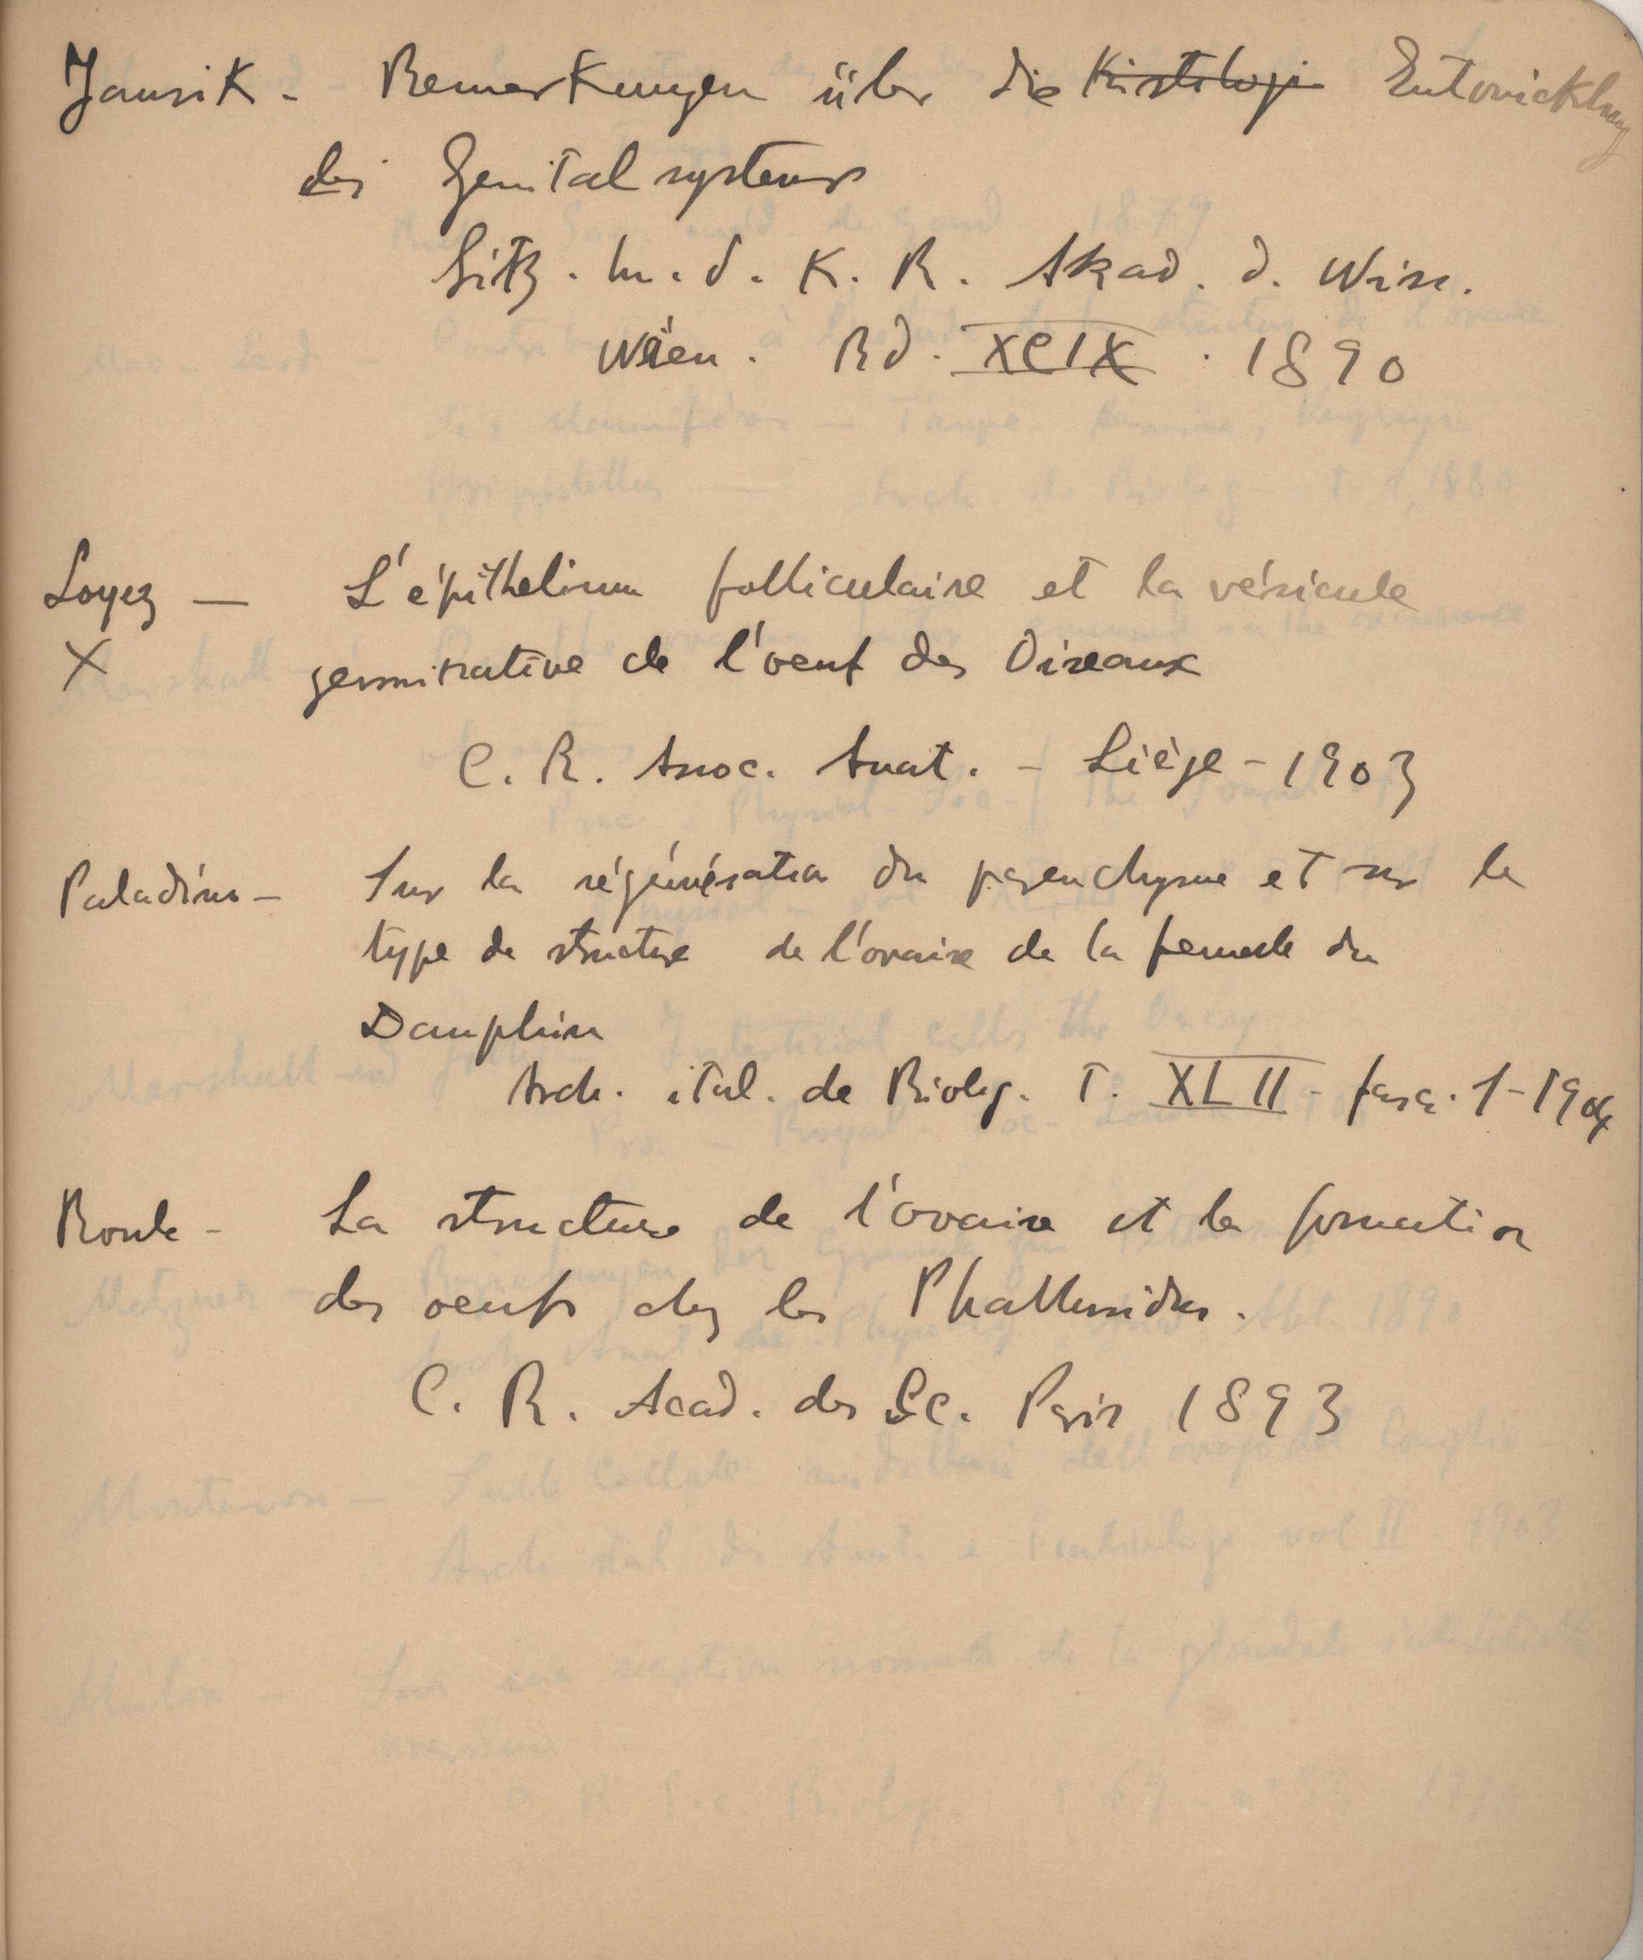 Janosik - Bemerkungen über die Histologie Entwicklung
des Genital systems
Sitz. b. d. K. K. Akad. d. Wiss.
Wien. Bd. XCIX. 1890
Loyez — L'épithélium folliculaire et la vésicule
X germinative de l'oeuf des Oiseaux
C. R. Assoc. Anat. - Liège - 1903
Paladino - Sur la régénération du parenchyme et sur le
type de structure de l'ovaire de la femelle du
Dauphin
Arch. ital. de Biolog. T. XLII - fasc. 1 - 1904
Roule - La structure de l'ovaire et la formation
des oeufs chez les Phallusidés.
C. R. Acad. des Sc. Paris 1893